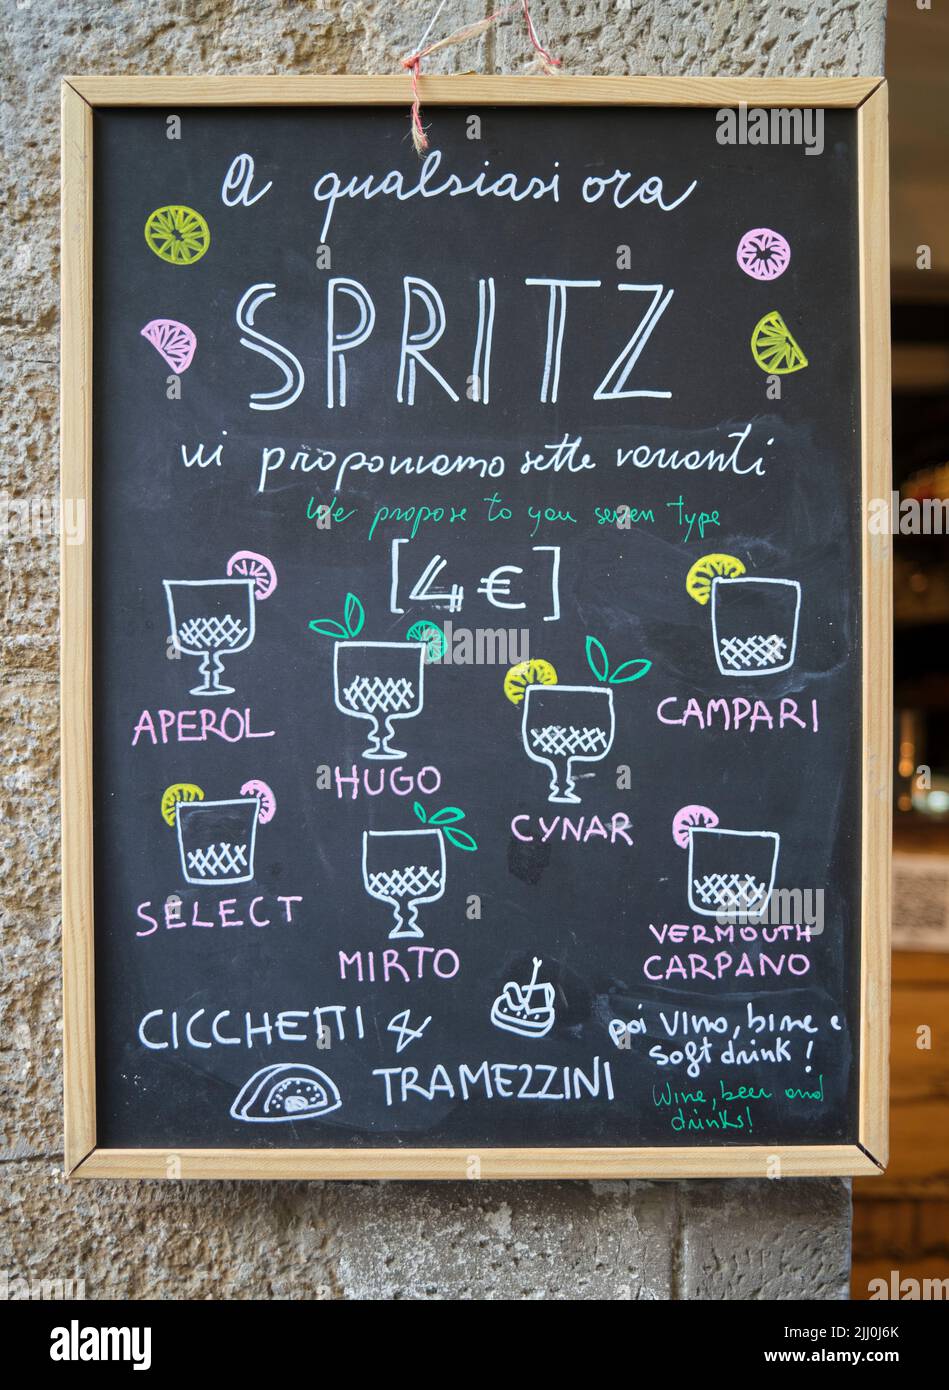 A qualsiasi ora
SPRITZ
vi proponiamo sette varianti
We propose to you seven type
[4 €]
APEROL
HUGO
CYNAR
CAMPARI
SELECT
MIRTO
VERMOUTH
CARPANO
CICCHETTI &
TRAMEZZINI
poi vino, birre e
soft drink!
Wine, beer and
drinks!
alamy
Image ID: 2JJ0J6K
www.alamy.com